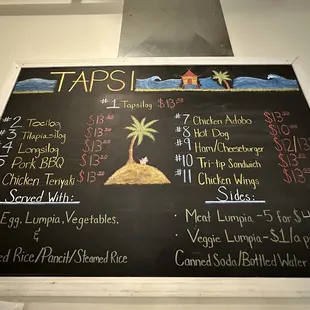 TAPSI
#1 Tapsilog $13
#2 Tocilog $13
3 Tilapiasilog $13
4 Longsilog $13
5 Pork BBQ $13
Chicken Teriyaki $13
#7 Chicken Adobo $13
#8 Hot Dog $10
#9 Ham/Cheeseburger
#10 Tri-tip Sandwich $13
#11 Chicken Wings $13
Served With:
Egg, Lumpia, Vegetables.
&
Rice/Pancit/Steamed Rice
Sides:
Meat Lumpia - 5 for $4
Veggie Lumpia - $1/a
Canned Soda/Bottled Water